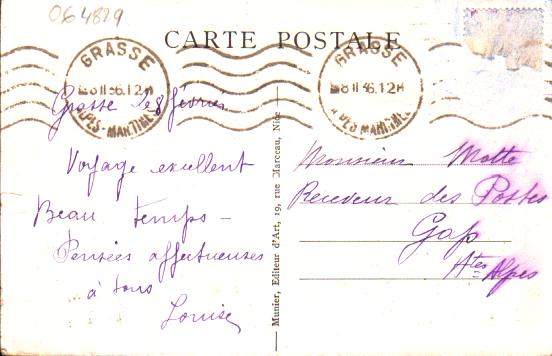 064829
CARTE POSTALE
GRASSE
8 II 36.12H
ALPES-MARITIMES
GRASSE
8 II 36.12H
ALPES-MARITIMES
Grasse le 8 février
Voyage excellent
Beau temps –
Pensées affectueuses
à tous
Louise
Munier, Editeur d'Art, 19, rue Marceau, Nice
Monsieur Motte
Receveur des Postes
Gap
Htes Alpes